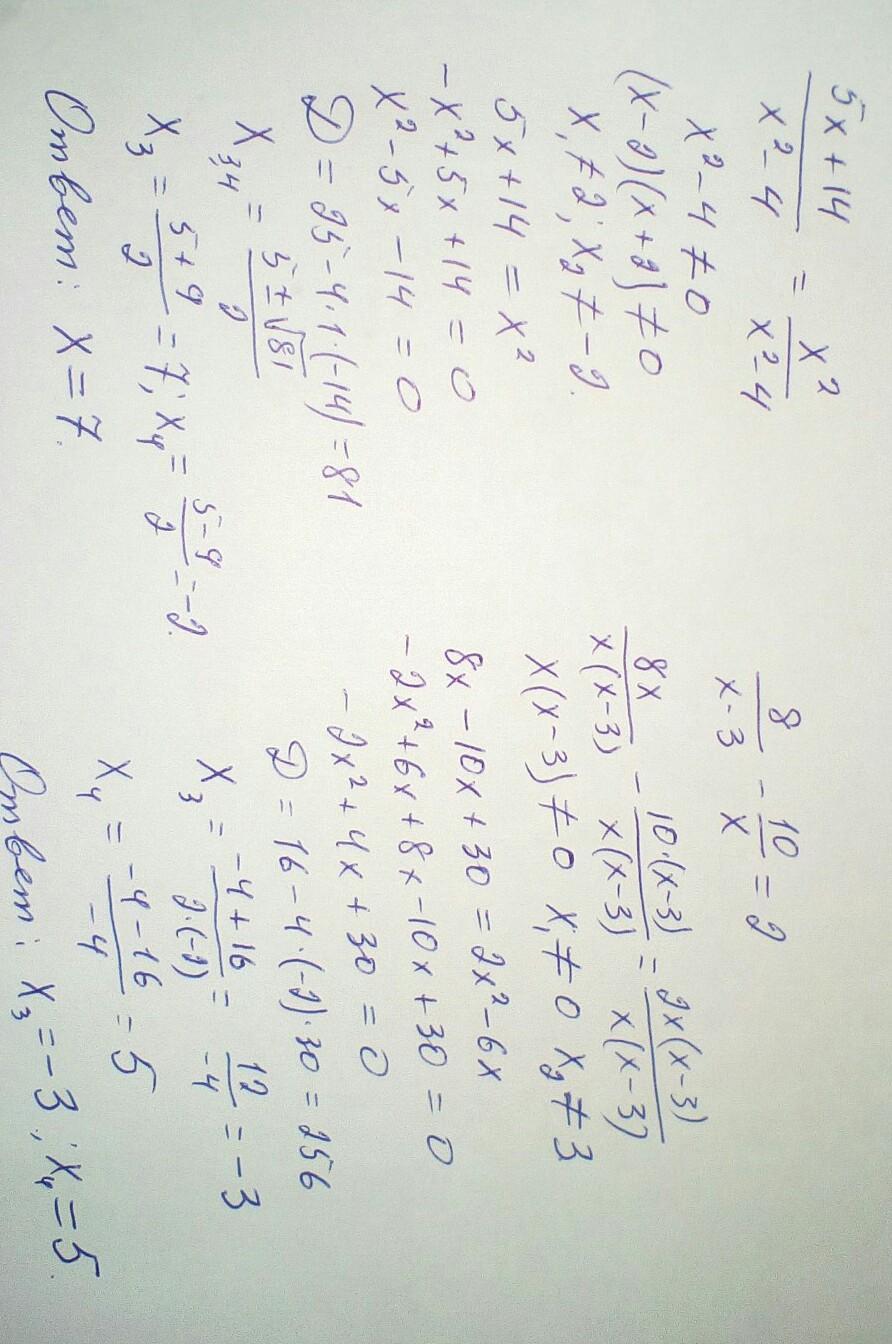 (5x + 14)/(x² - 4) = x²/(x² - 4)
x² - 4 ≠ 0
(x - 2)(x + 2) ≠ 0
x₁ ≠ 2; x₂ ≠ -2.
5x + 14 = x²
-x² + 5x + 14 = 0
x² - 5x - 14 = 0
D = 25 - 4·1·(-14) = 81
x₃,₄ = (5 ± √81)/2
x₃ = (5 + 9)/2 = 7; x₄ = (5 - 9)/2 = -2.
Ответ: x = 7.
8/(x - 3) - 10/x = 2
8x/(x(x - 3)) - 10·(x - 3)/(x(x - 3)) = 2x(x - 3)/(x(x - 3))
x(x - 3) ≠ 0 x₁ ≠ 0 x₂ ≠ 3
8x - 10x + 30 = 2x² - 6x
-2x² + 6x + 8x - 10x + 30 = 0
-2x² + 4x + 30 = 0
D = 16 - 4·(-2)·30 = 256
x₃ = (-4 + 16)/(2·(-2)) = 12/(-4) = -3
x₄ = (-4 - 16)/(-4) = 5
Ответ: x₃ = -3; x₄ = 5.